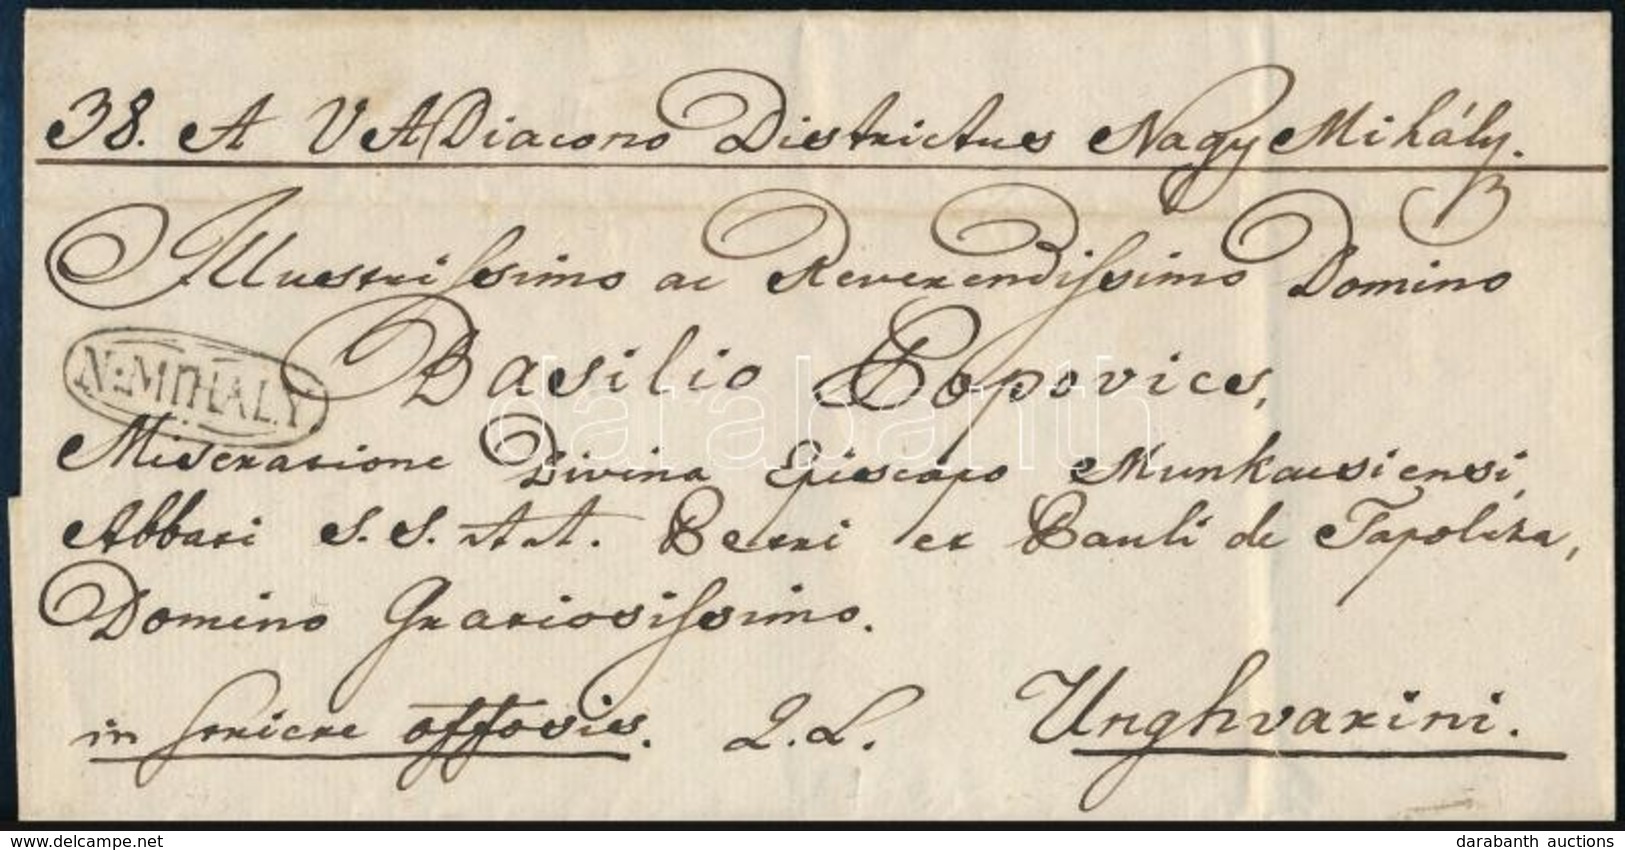 38. A V A Diacono Districtus Nagy Mihály.
Illustrissimo ac Reverendissimo Domino
Basilio Popovics,
N: MIHALY
Miseratione Divina Episcopo Munkacsiensi,
Abbati S. S. A A. Petri et Pauli de Tapolcza,
Domino Gratiosissimo.
in
officis. Q. L. Unghvarini.
darabanth
darabanth auctions